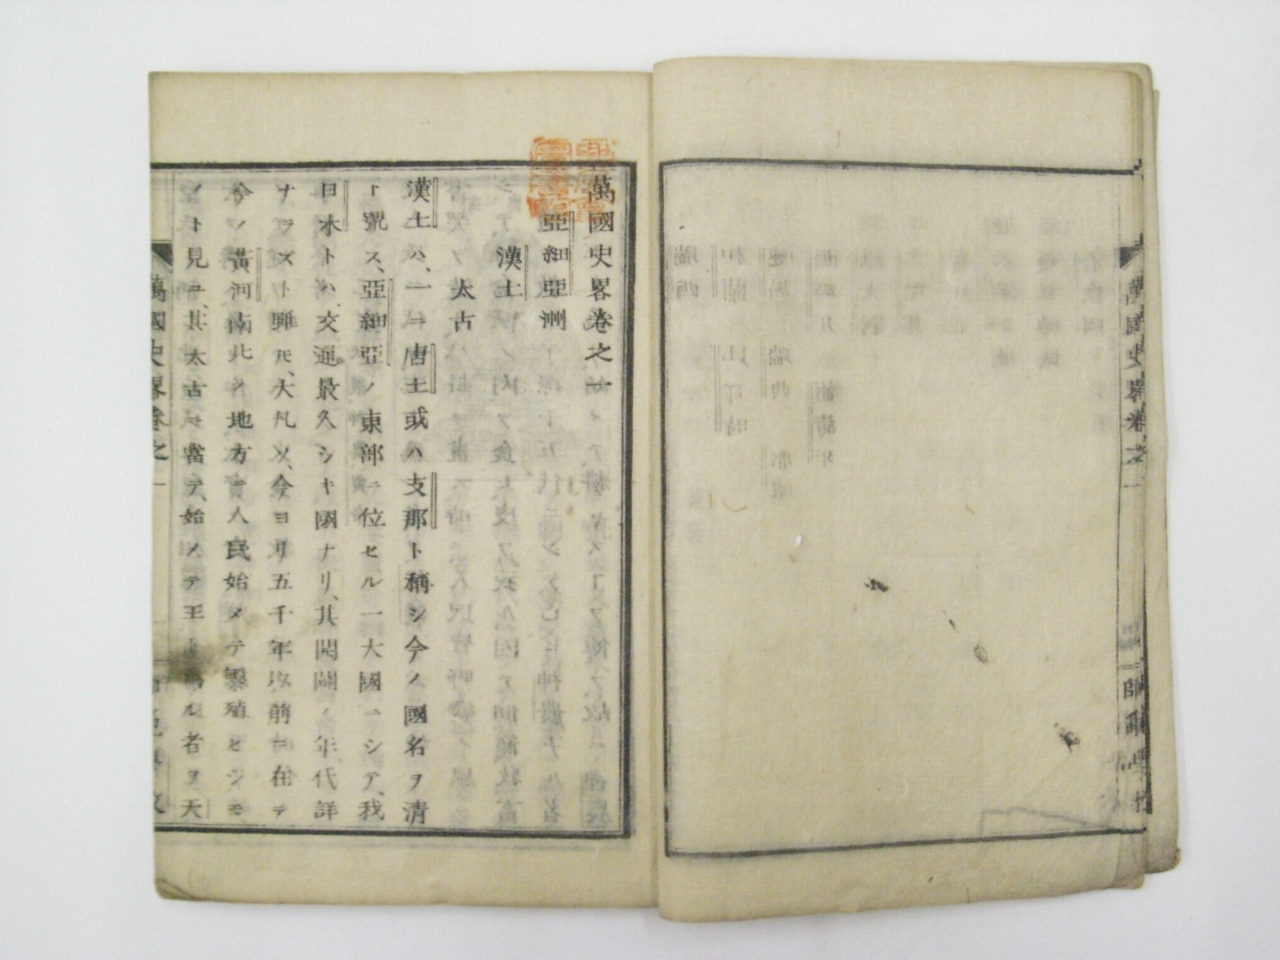 萬國史畧卷之一
師範學校
萬國史畧卷之一
亞細亞洲
漢土
太古
漢土ハ、一ニ唐土或ハ支那ト稱シ今ノ國名ヲ清
ト號ス、亞細亞ノ東部ニ位セル一大國ニシテ、我
日本トハ、交通最久シキ國ナリ、其開闢ノ年代詳
ナラズト雖モ、大凡ソ、今ヨリ五千年以前ニ在テ
今ノ黄河南北ノ地方ニ人民始メテ繁殖セシモ
ノト見ユ、其太古ニ當テ、始メテ王ト爲ル者ヲ天
萬國史畧卷之一